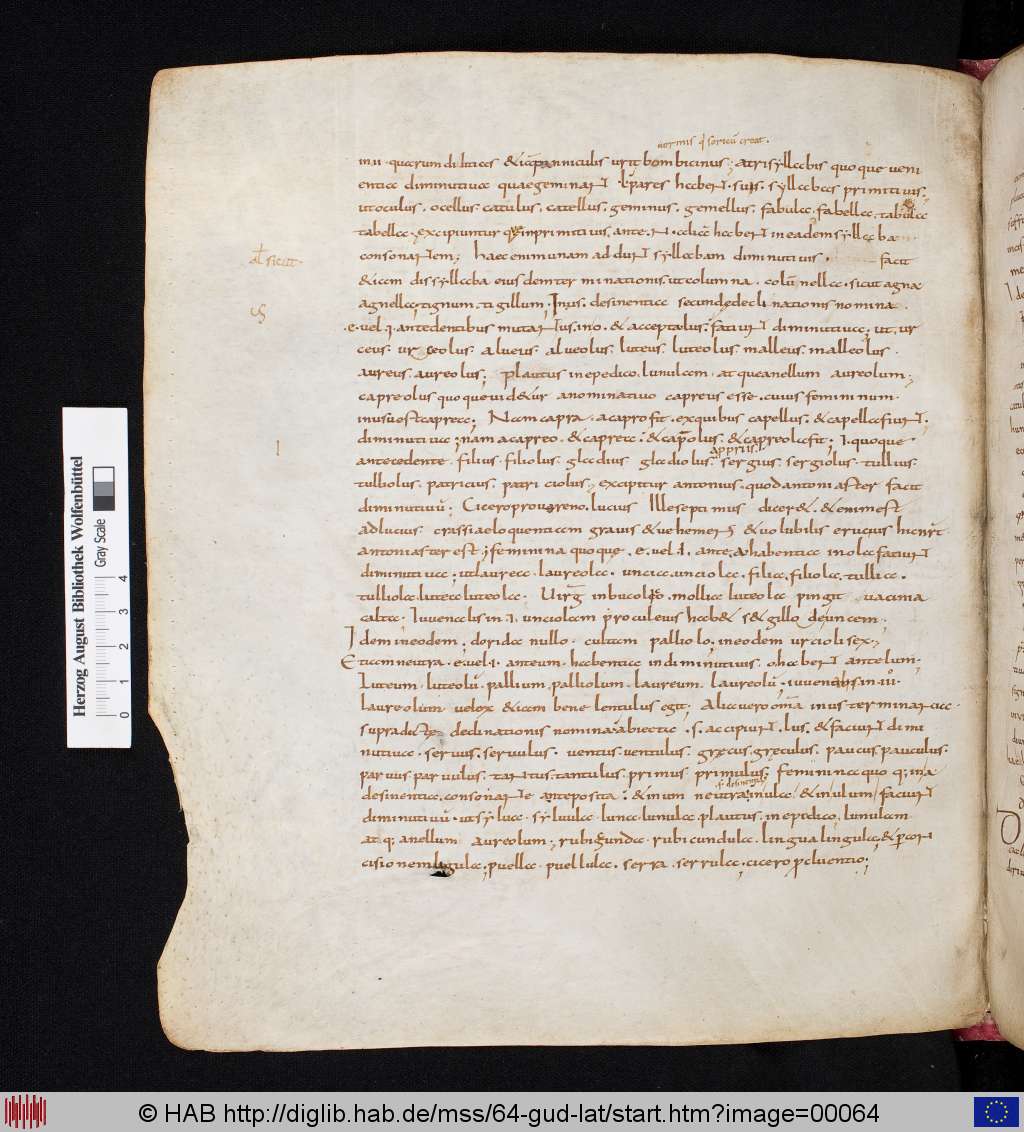 uermis q sericu creat.
in .ii. quarum di litteras & iam panniculis urit bombicinus; a trisyllabis quoque veni
entia diminutiva quae geminant .l. pares habent suis syllabas primitivis.
ut oculus. ocellus. catulus. catellus. geminus. gemellus. fabula. fabella. tabula
tabella. excipiuntur quae in primitivis ante .n. habent in eadem syllaba
consonantem; haec enim unam addunt syllabam diminutivis. facit
al sicut
& iam dissyllaba eiusdem terminationis. ut columna. columnella. sicut agna
agnella; tignum. tigillum. In us. desinentia secundae declinationis nomina.
.e. vel .i. antecedentibus mutant us. in o. & accepta lus. faciunt diminutiva; ut. ur
ceus. urceolus. alveus. alveolus. luteus. luteolus. malleus. malleolus.
aureus. aureolus; plautus in epedico. lunulam. atque anellum aureolum;
capreolus quoque videtur a nominativo capreus esse. cuius femininum.
in usu est caprea; Nam capra. a capro fit. ex quibus capellus. & capella fiunt.
diminutiva; nam a capreo. & caprea. & capreolus. & capreola fit; i. quoque
I
antecedente. filius. filiolus. gladius gladiolus. sergius. sergiolus. tullius.
tulliolus. patricius. patriciolus; excipitur antonius. quod antoniaster facit
diminutivu; Cicero pro vareno. lucius Ille septimus diceret. & enim est
ad lucius crassi a eloquentiam gravis & vehemens & volubilis erucius hic nr
antoniaster est; feminina quoque .e. vel .i. ante .a. habentia in ola faciunt
diminutiva; ut laurea. laureola. uncia. unciola. filia. filiola. tullia.
tulliola. lutea luteola. Uirg in bucol. mollia luteola pingit vacinia
calta. Iuvenalis in .i. unciolam proculeius habet set gillo deuncem.
Idem in eodem. dorida nullo cultam palliolo, in eodem urcioli sex;
Etiam neutra .e. vel .i. ante um. habentia in diminutivis .o. habent ante lum.
Luteum. luteolu. pallium. palliolum. laureum. laureolu. iuvenalis in .iii.
laureolum velox etiam bene lentulus egit; Alia vero oma in us terminata
supradictae declinationis nomina. abiecta .s. accipiunt .lus. & faciunt dimi
nutiva. servus. servulus. ventus. ventulus. graecus. graeculus. paucus. pauculus.
parvus. parvulus. tantus. tantulus. primus primulus; feminina quoq; in a
desinentia. consonante anteposita. & in um neutra. in ula & in ulum faciunt
diminutivu. ut sylva. sylvula. luna. lunula. plautus. in epedico. lunulam
atq; anellum aureolum; rubicunda. rubicundula. lingua lingula. & p con
cisionem ligula; puella. puellula. serra. serrula; cicero p cluentio;
Herzog August Bibliothek Wolfenbüttel
Gray Scale
0 1 2 3 4
© HAB http://diglib.hab.de/mss/64-gud-lat/start.htm?image=00064